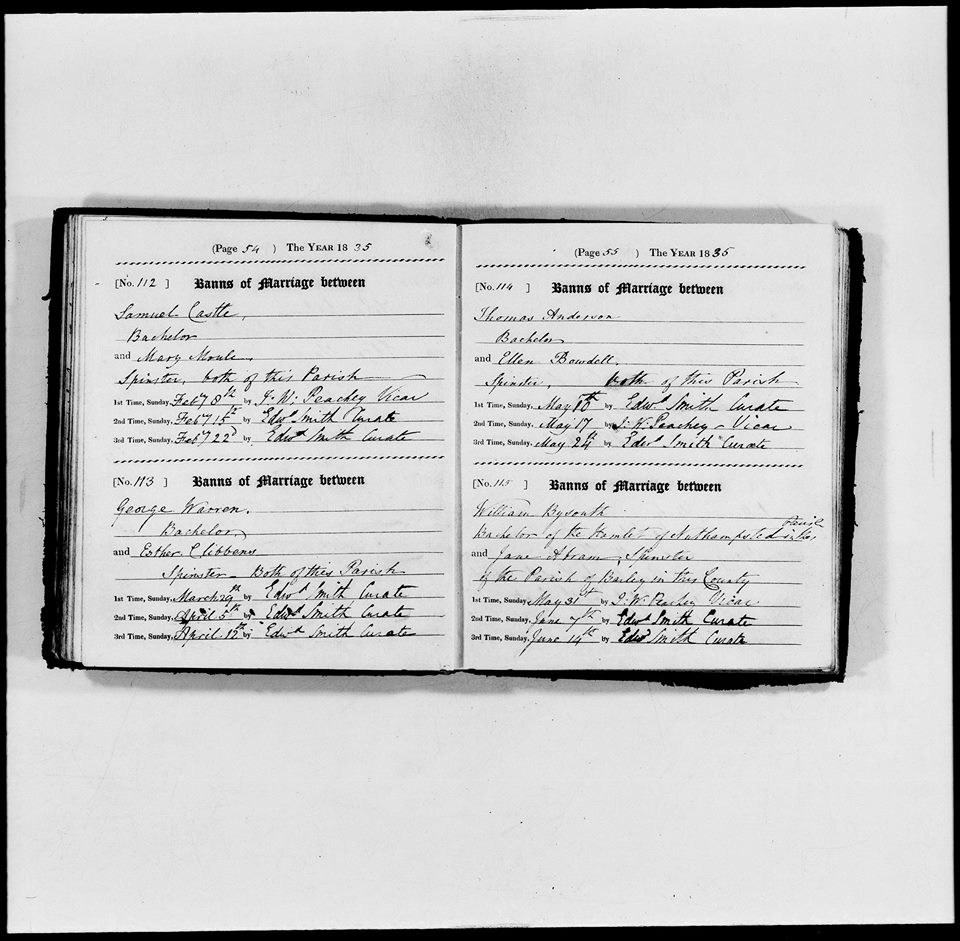 (Page 54 ) The YEAR 1835
[No. 112 ] Banns of Marriage between
Samuel Castle,
Bachelor
and Mary Moule
Spinster, both of this Parish
1st Time, Sunday, Feby 8th by J. W. Peachey Vicar
2nd Time, Sunday, Feby 15th by Edwd Smith Curate
3rd Time, Sunday, Feby 22d by Edwd Smith Curate
[No. 113 ] Banns of Marriage between
George Warren.
Bachelor
and Esther Clibbens
Spinster - Both of this Parish
1st Time, Sunday, March 29th by Edwd Smith Curate
2nd Time, Sunday, April 5th by Edwd Smith Curate
3rd Time, Sunday, April 12th by Edwd Smith Curate
(Page 55 ) The YEAR 1835
[No. 114 ] Banns of Marriage between
Thomas Anderson
Bachelor
and Ellen Bowdell.
Spinster, both of this Parish
1st Time, Sunday, May 10th by Edwd Smith Curate
2nd Time, Sunday, May 17 by J. W. Peachey - Vicar
3rd Time, Sunday, May 24th by Edwd Smith Curate
[No. 115 ] Banns of Marriage between
William Bysouth
Parish
Bachelor of the Hamlet of Nuthampsted in this
and Jane Abram, Spinster
of the Parish of Barley in this County
1st Time, Sunday, May 31st by J. W. Peachey Vicar
2nd Time, Sunday, June 7th by Edwd Smith Curate
3rd Time, Sunday, June 14th by Edwd Smith Curate